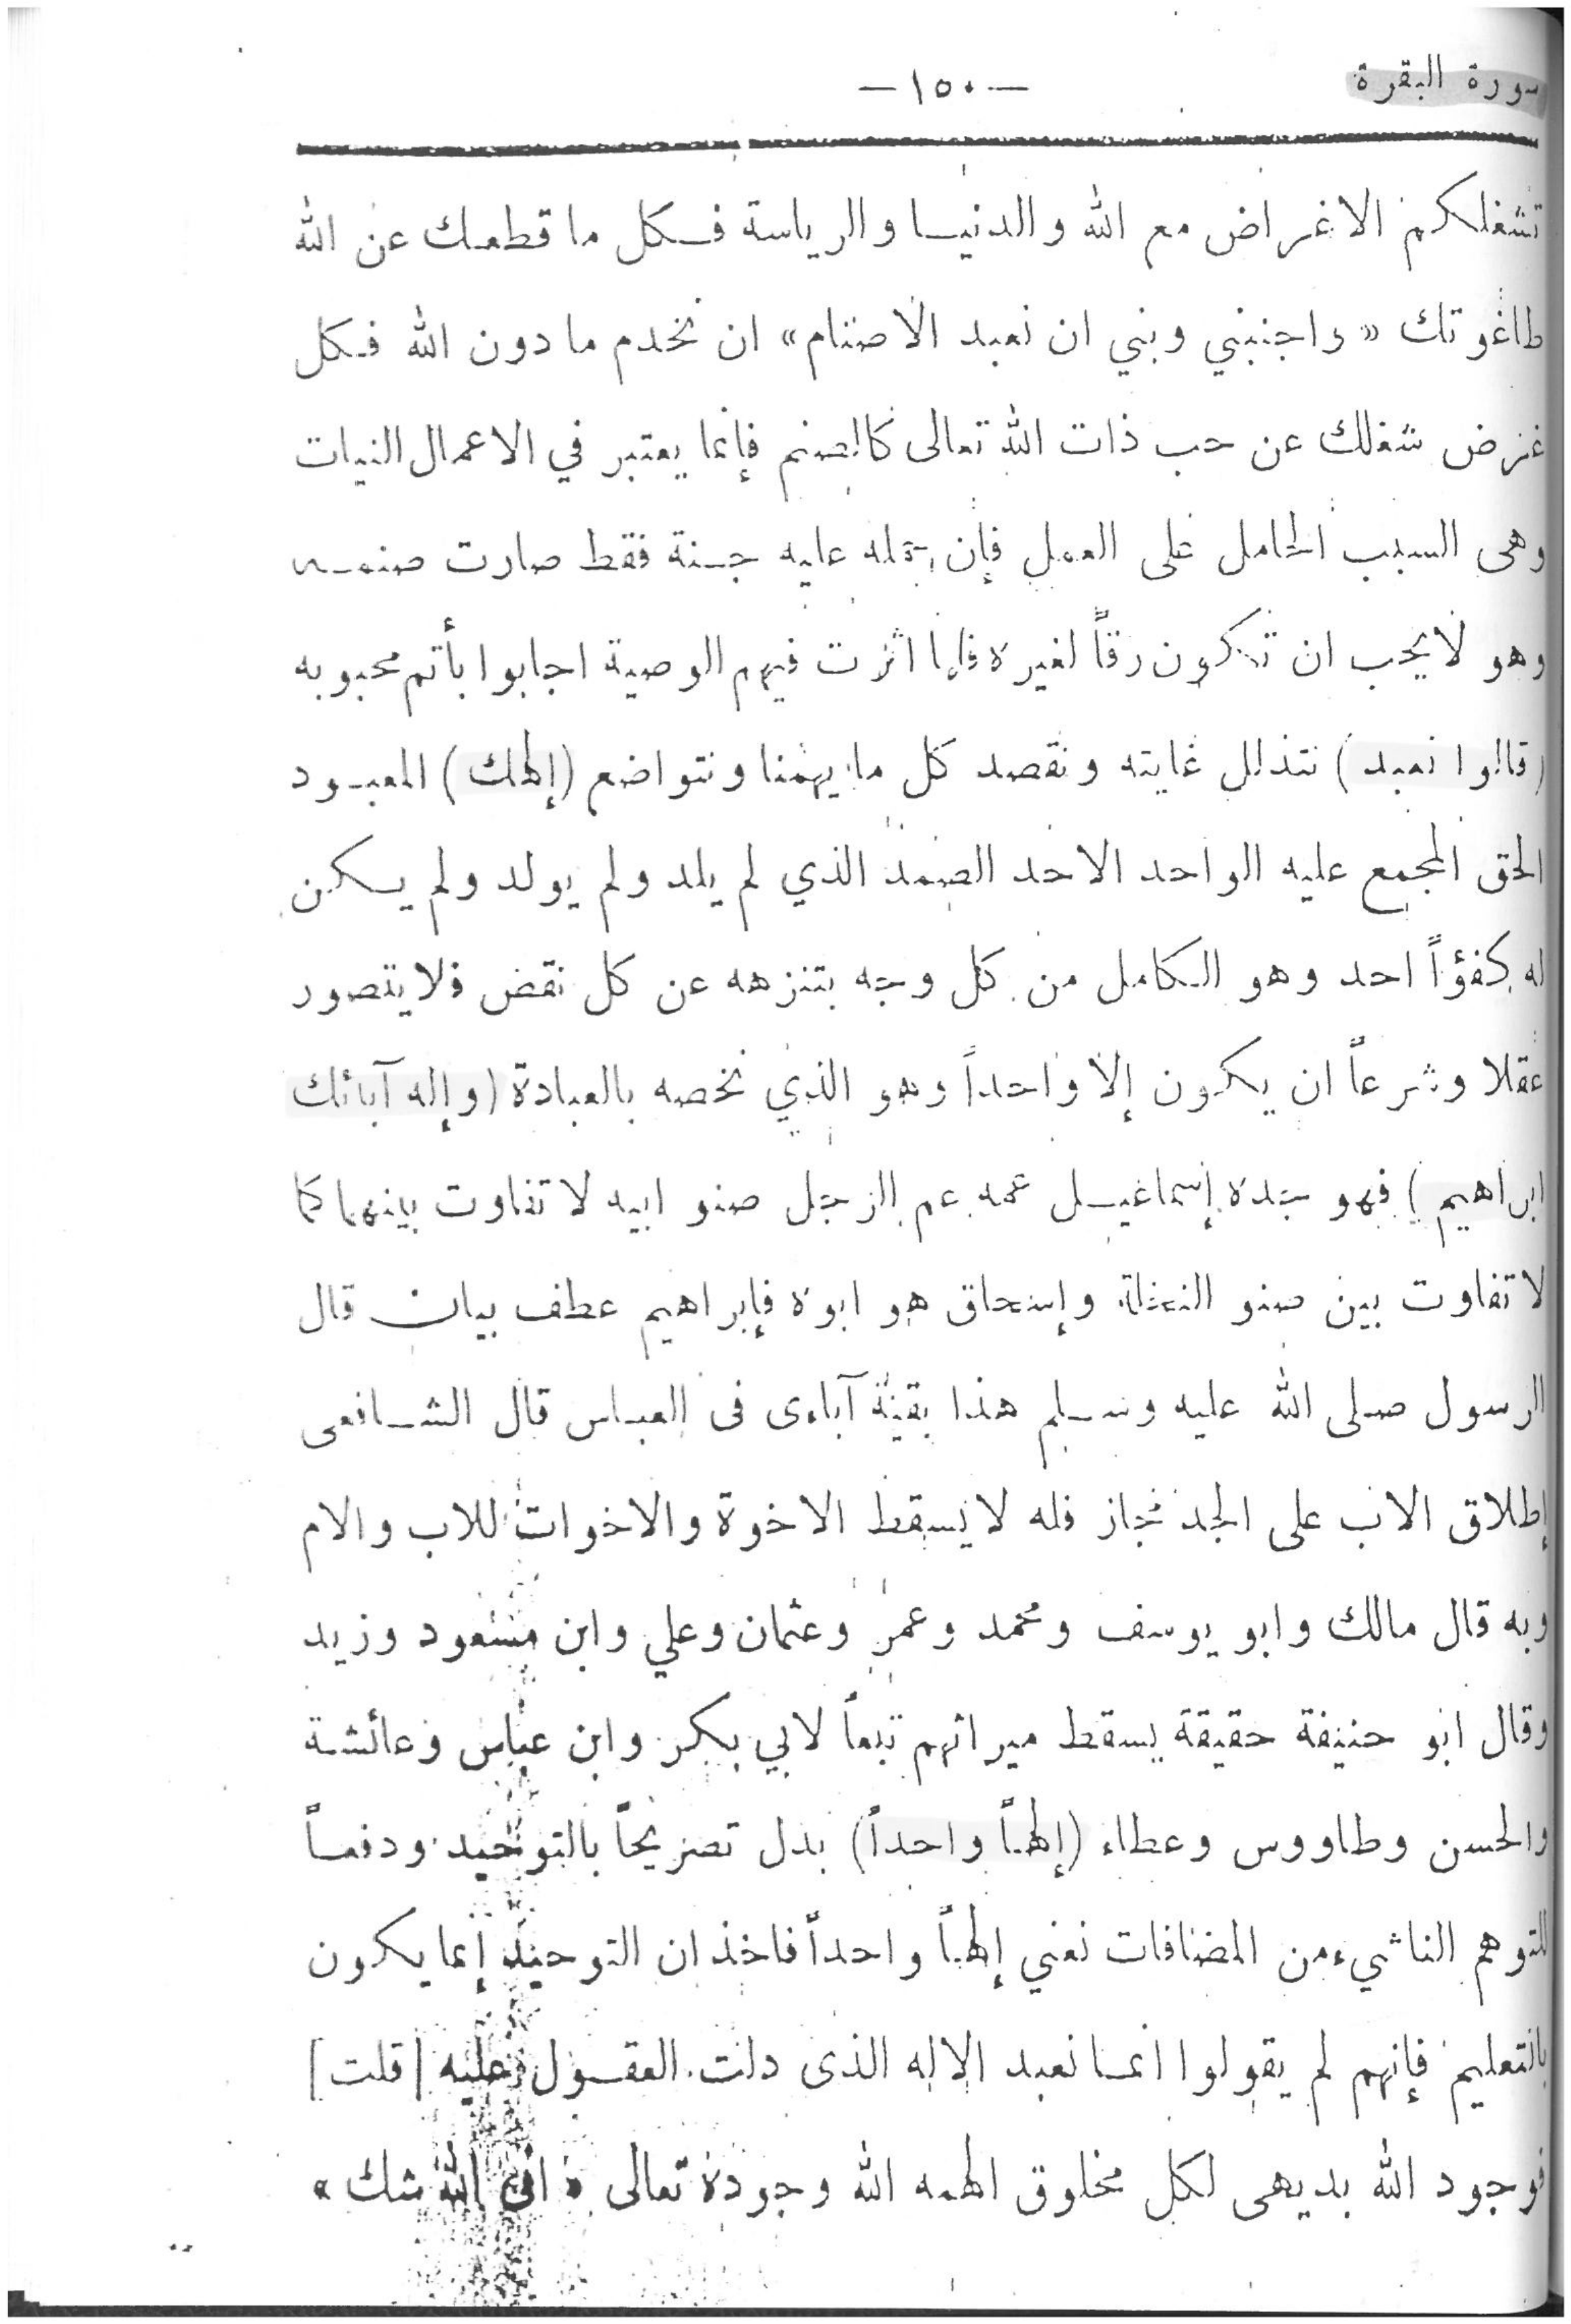 سورة البقرة
— ١٥٠ —
تشغلكم الاغراض مع الله والدنيا والرياسة فكل ما قطعك عن الله
طاغوتك « واجنبني وبني ان نعبد الاصنام » ان نخدم ما دون الله فكل
غرض شغلك عن حب ذات الله تعالى كالصنم فإنما يعتبر في الاعمال النيات
وهى السبب الحامل على العمل فإن حمله عليه جنة فقط صارت صنمه
وهو لا يحب ان تكون رقاً لغيره فلما اثرت فيهم الوصية اجابوا بأتم محبوبه
(قالوا نعبد) نتذلل غايته ونقصد كل ما يهمنا ونتواضع (إلهك) المعبود
الحق المجمع عليه الواحد الاحد الصمد الذي لم يلد ولم يولد ولم يكن
له كفؤاً احد وهو الكامل من كل وجه بتنزهه عن كل نقص فلا يتصور
عقلا وشرعاً ان يكون إلا واحداً وهو الذي نخصه بالعبادة (وإله آبائك
ابراهيم) فهو جده إسماعيل عمه عم الرجل صنو ابيه لا تفاوت بينهما كما
لا تفاوت بين صنو النخلة وإسحاق هو ابوه فإبراهيم عطف بيان قال
الرسول صلى الله عليه وسلم هذا بقية آباءى فى العباس قال الشافعى
إطلاق الاب على الجد مجاز فله لا يسقط الاخوة والاخوات للاب والام
وبه قال مالك وابو يوسف ومحمد وعمر وعثمان وعلي وابن مسعود وزيد
وقال ابو حنيفة حقيقة يسقط ميراثهم تبعاً لابي بكر وابن عباس وعائشة
والحسن وطاووس وعطاء (إلهاً واحداً) بدل تصريحاً بالتوحيد ودفعاً
للتوهم الناشيء من المضافات نعني إلهاً واحداً فاخذ ان التوحيد إنما يكون
بالتعليم فإنهم لم يقولوا انما نعبد الاله الذى دلت العقول عليه [قلت]
فوجود الله بديهى لكل مخلوق الهمه الله وجوده تعالى « افى الله شك »